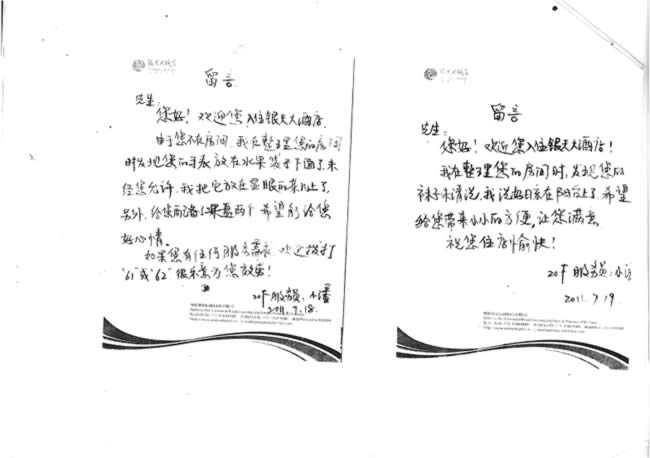 留言
先生:
您好!欢迎您入住银天大酒店.
由于您不在房间,我在整理您的房间
时发现您的手表放在水果袋子下面了,未
经您允许,我把它放在显眼的茶几上了.
另外,给您
两个 希望能给您
好心情。
如果您有任何服务需求 欢迎拨打
"61"或"62" 很乐意为您效劳!
20F服务员:小潘
2011.7.18.
留言
先生:
您好!欢迎您入住银天大酒店!
我在整理您的房间时,发现您的
袜子未清洗,我洗好晾在阳台上了.希望
给您带来小小的方便,让您满意.
祝您住店愉快!
20F 服务员:小潘
2011.7.19